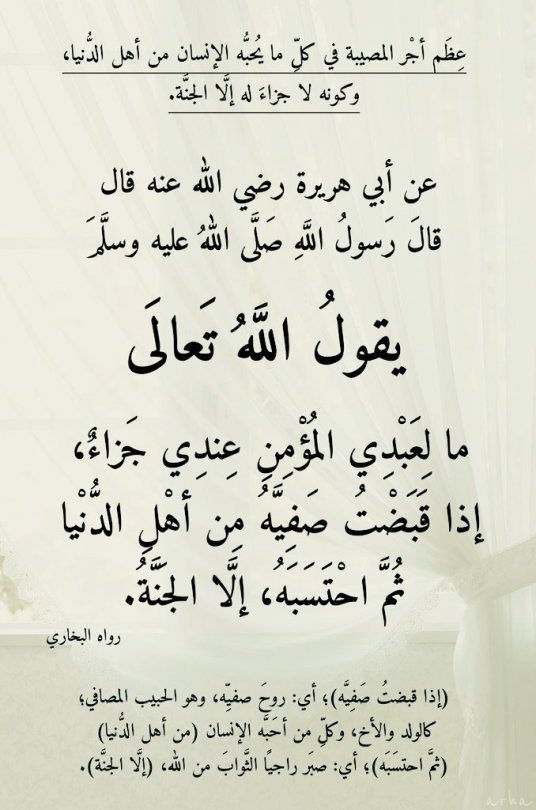 عِظَم أجْر المصيبة في كلِّ ما يُحبُّه الإنسان من أهل الدُّنيا،
وكونه لا جزاءَ له إلَّا الجنَّة.
عن أبي هريرة رضي الله عنه قال
قالَ رَسولُ اللَّهِ صَلَّى اللهُ عليه وسلَّمَ
يقولُ اللَّهُ تَعالَى
ما لِعَبْدِي المُؤْمِنِ عِندِي جَزاءٌ،
إذا قَبَضْتُ صَفِيَّهُ مِن أهْلِ الدُّنْيا
ثُمَّ احْتَسَبَهُ، إلَّا الجَنَّةُ.
رواه البخاري
(إذا قبضتُ صَفِيَّه)؛ أي: روحَ صفيّه، وهو الحبيب المصافي؛
كالولد والأخ، وكلِّ من أحَبَّه الإنسان (من أهل الدُّنيا)
(ثمَّ احتسبَه)؛ أي: صبَر راجيًا الثَّوابَ من الله، (إلَّا الجنَّة).
arha